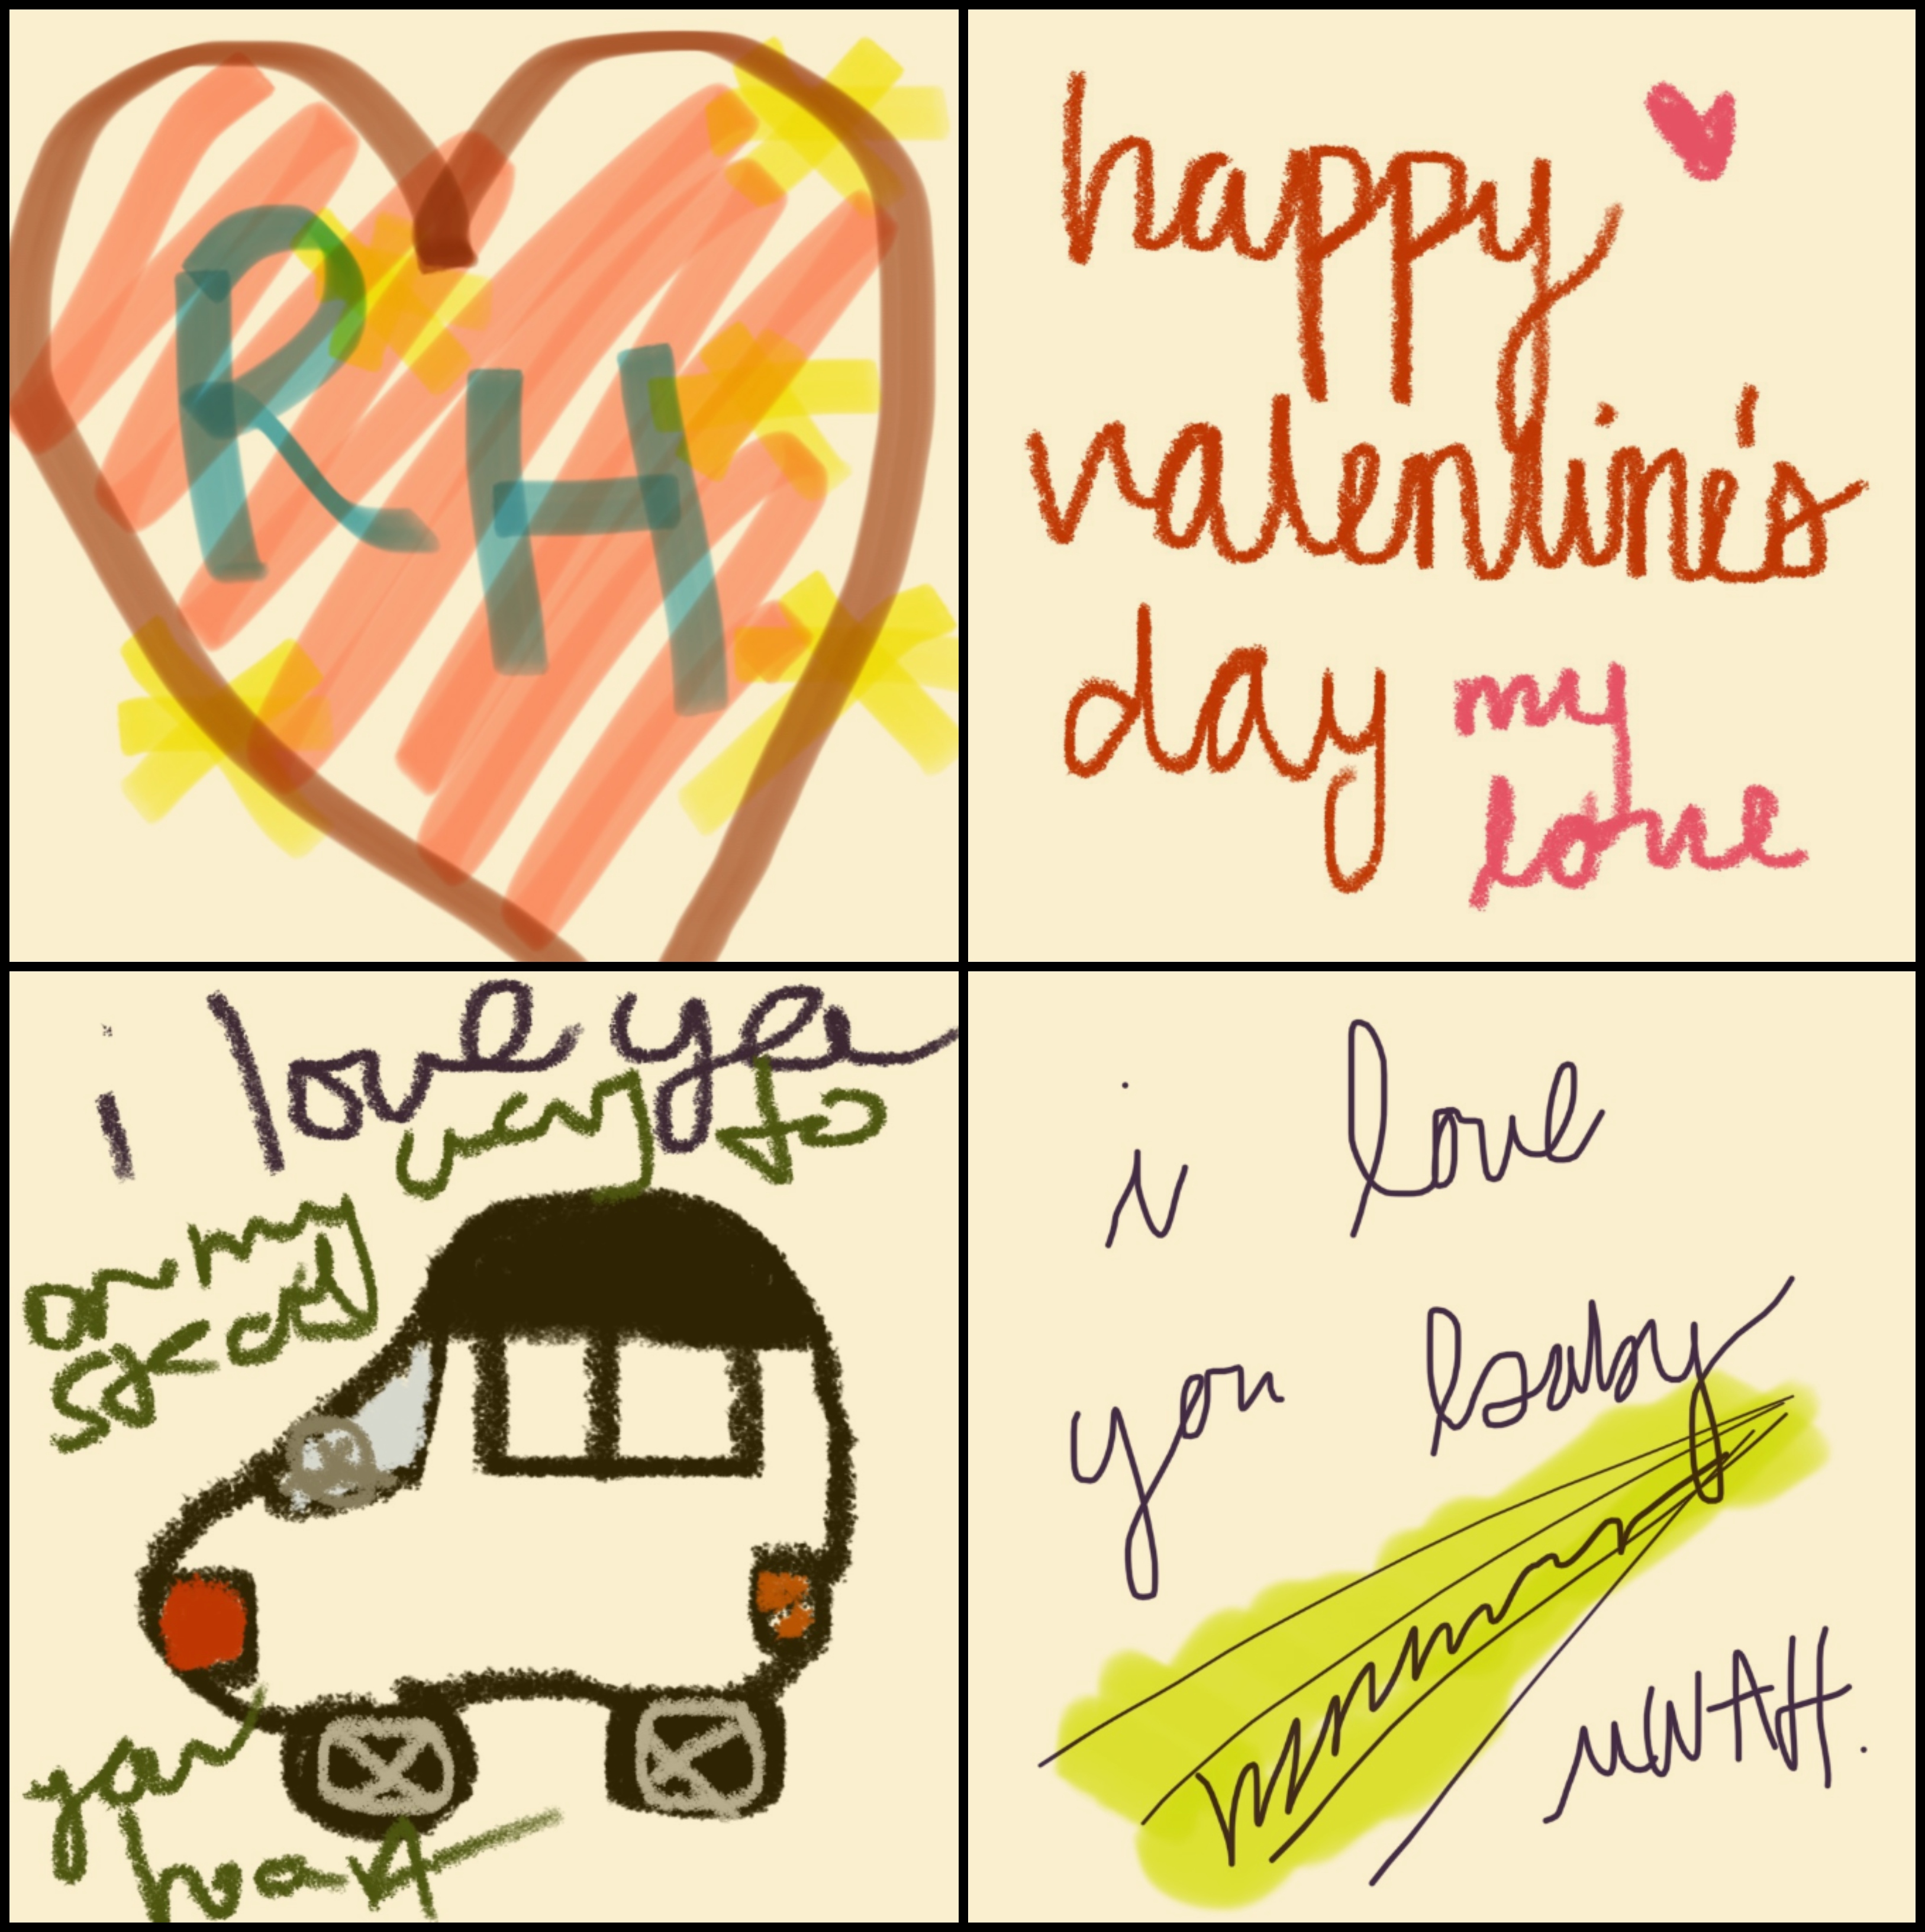 R H
happy
valentine's
day my
love
i love you
way to
on my
your
heart
i love
you baby
MWAH.